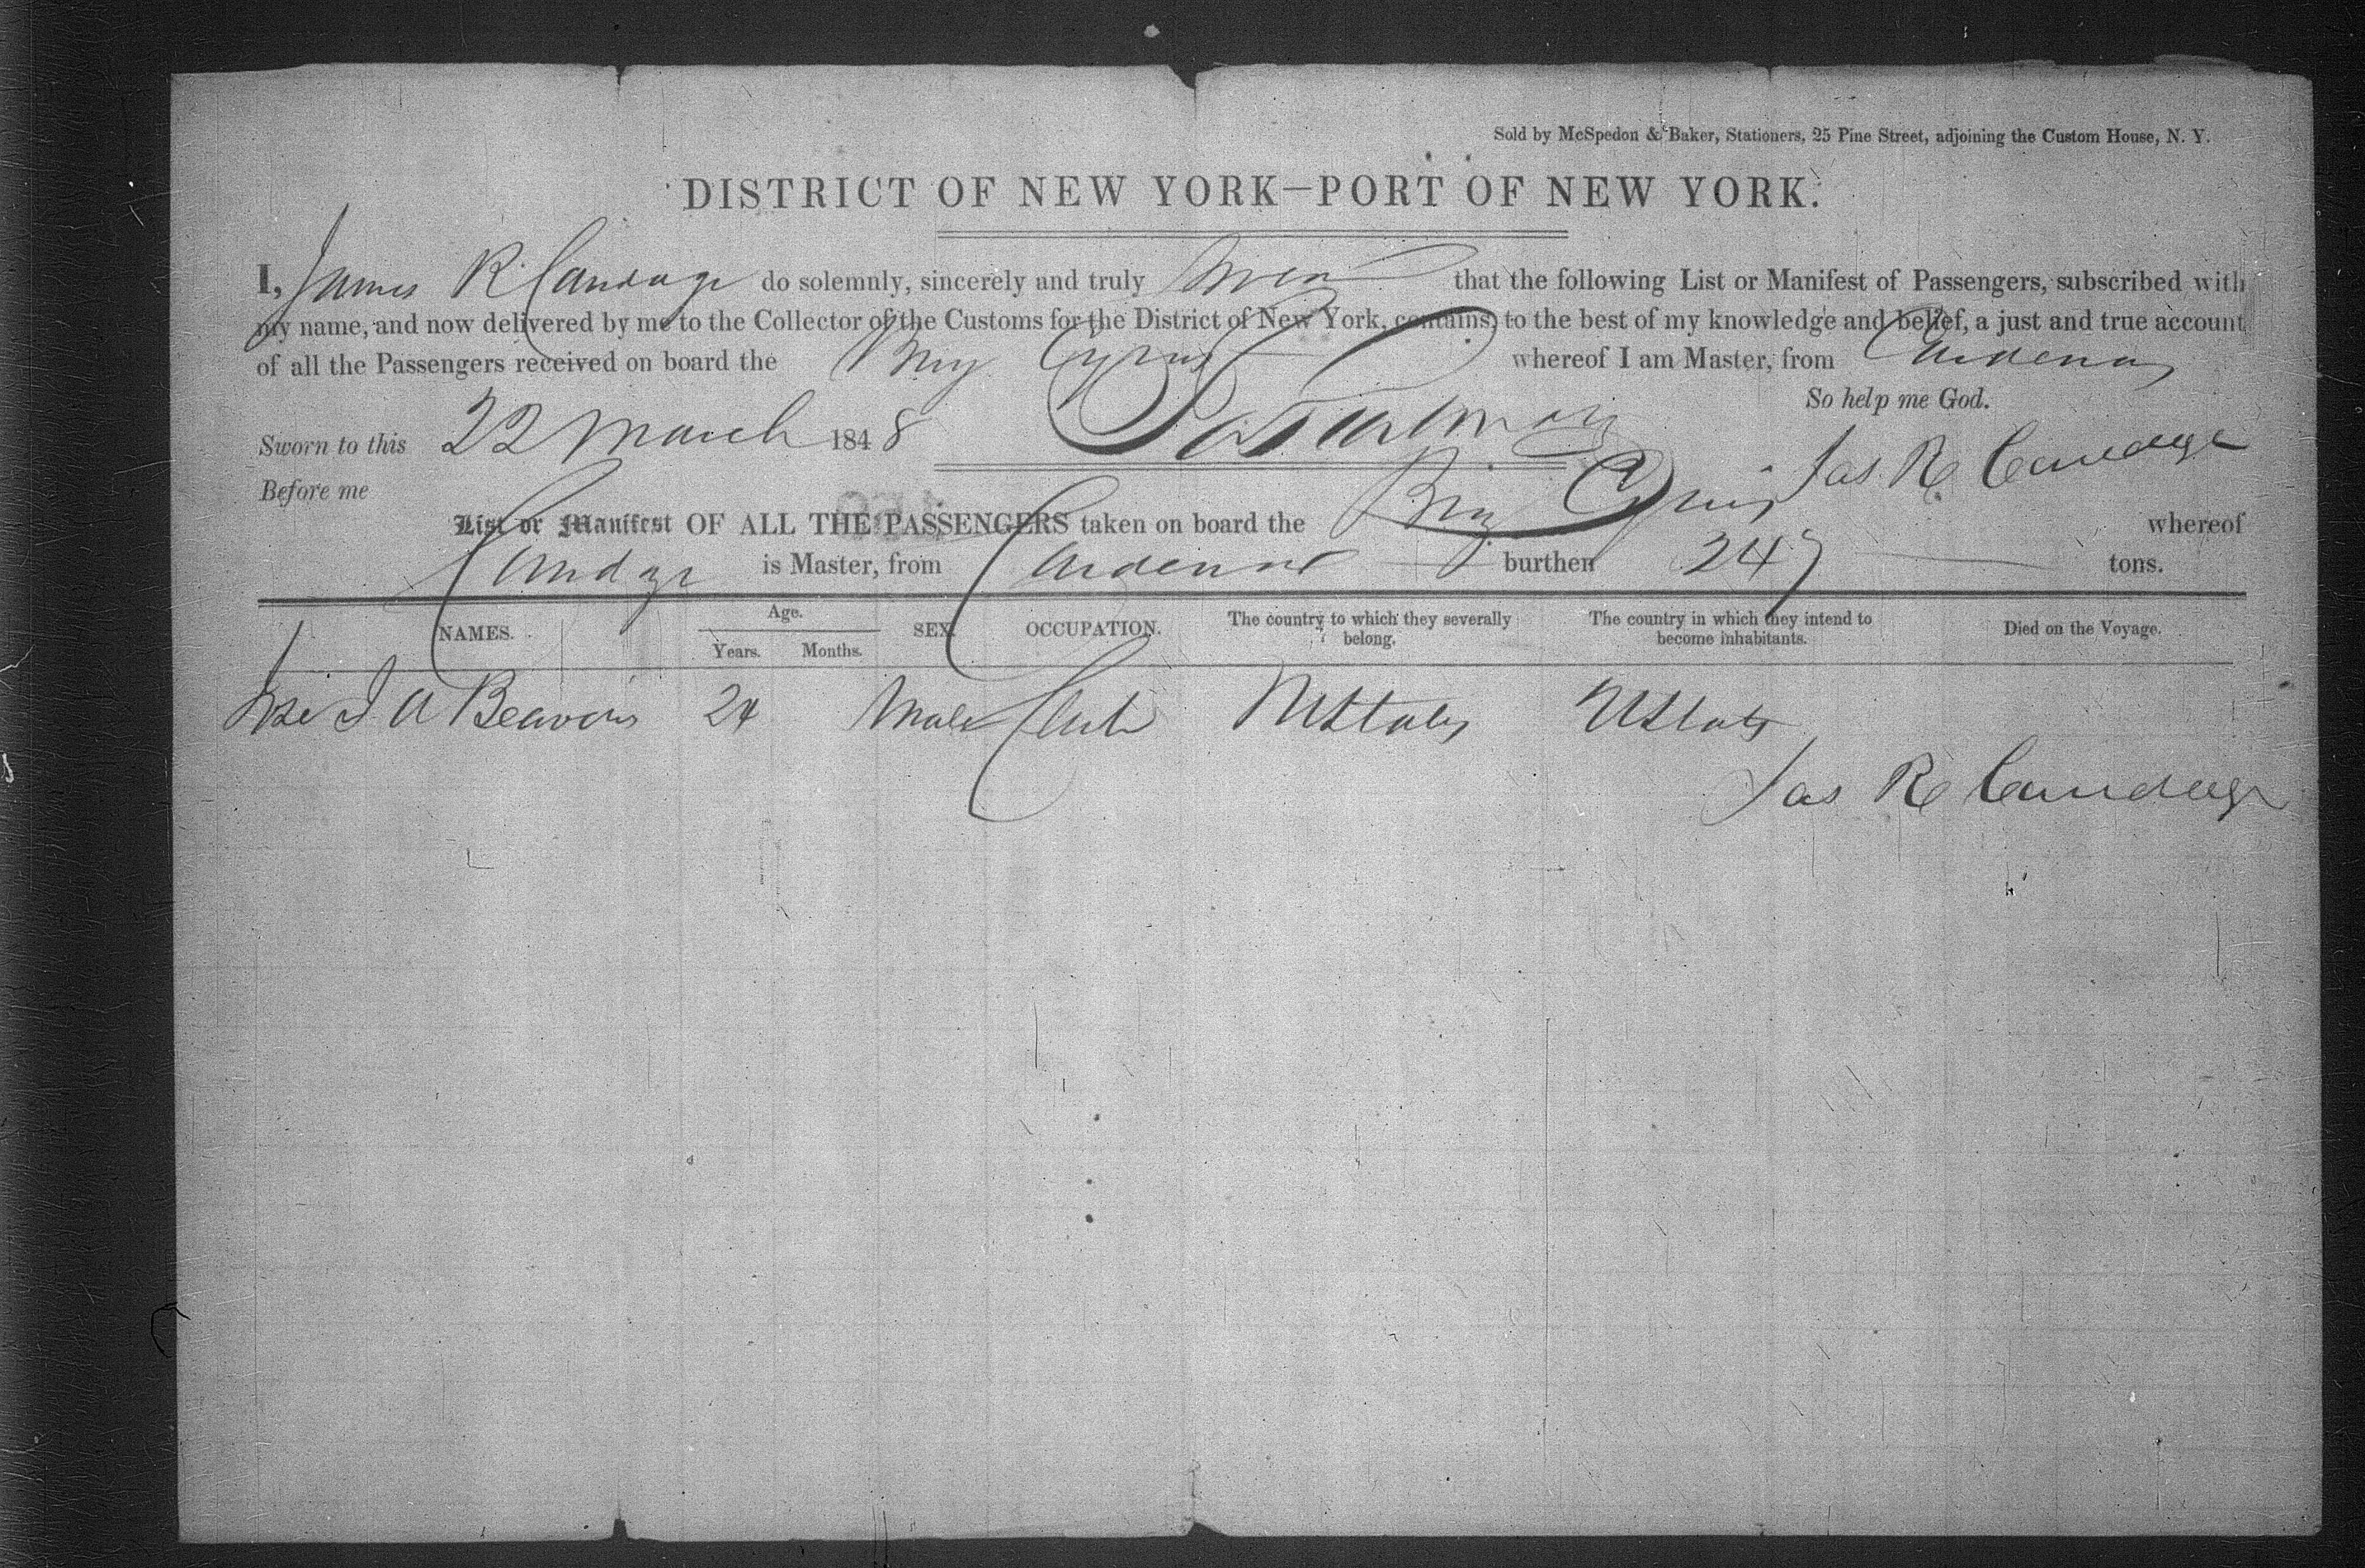 Sold by McSpedon & Baker, Stationers, 25 Pine Street, adjoining the Custom House, N. Y.
DISTRICT OF NEW YORK—PORT OF NEW YORK.
I, James R. Candage do solemnly, sincerely and truly swear that the following List or Manifest of Passengers, subscribed with
my name, and now delivered by me to the Collector of the Customs for the District of New York, contains, to the best of my knowledge and belief, a just and true account
of all the Passengers received on board the Brig Cyrus whereof I am Master, from Cardenas
So help me God.
Sworn to this 22 March 1848
Jas. R. Candage
Before me
List or Manifest OF ALL THE PASSENGERS taken on board the Brig Cyrus whereof
Candage is Master, from Cardenas burthen 247 tons.
NAMES. Age. Years. Months. SEX. OCCUPATION. The country to which they severally belong. The country in which they intend to become inhabitants. Died on the Voyage.
J A 24 Male UStates UStates
Jas R Candage